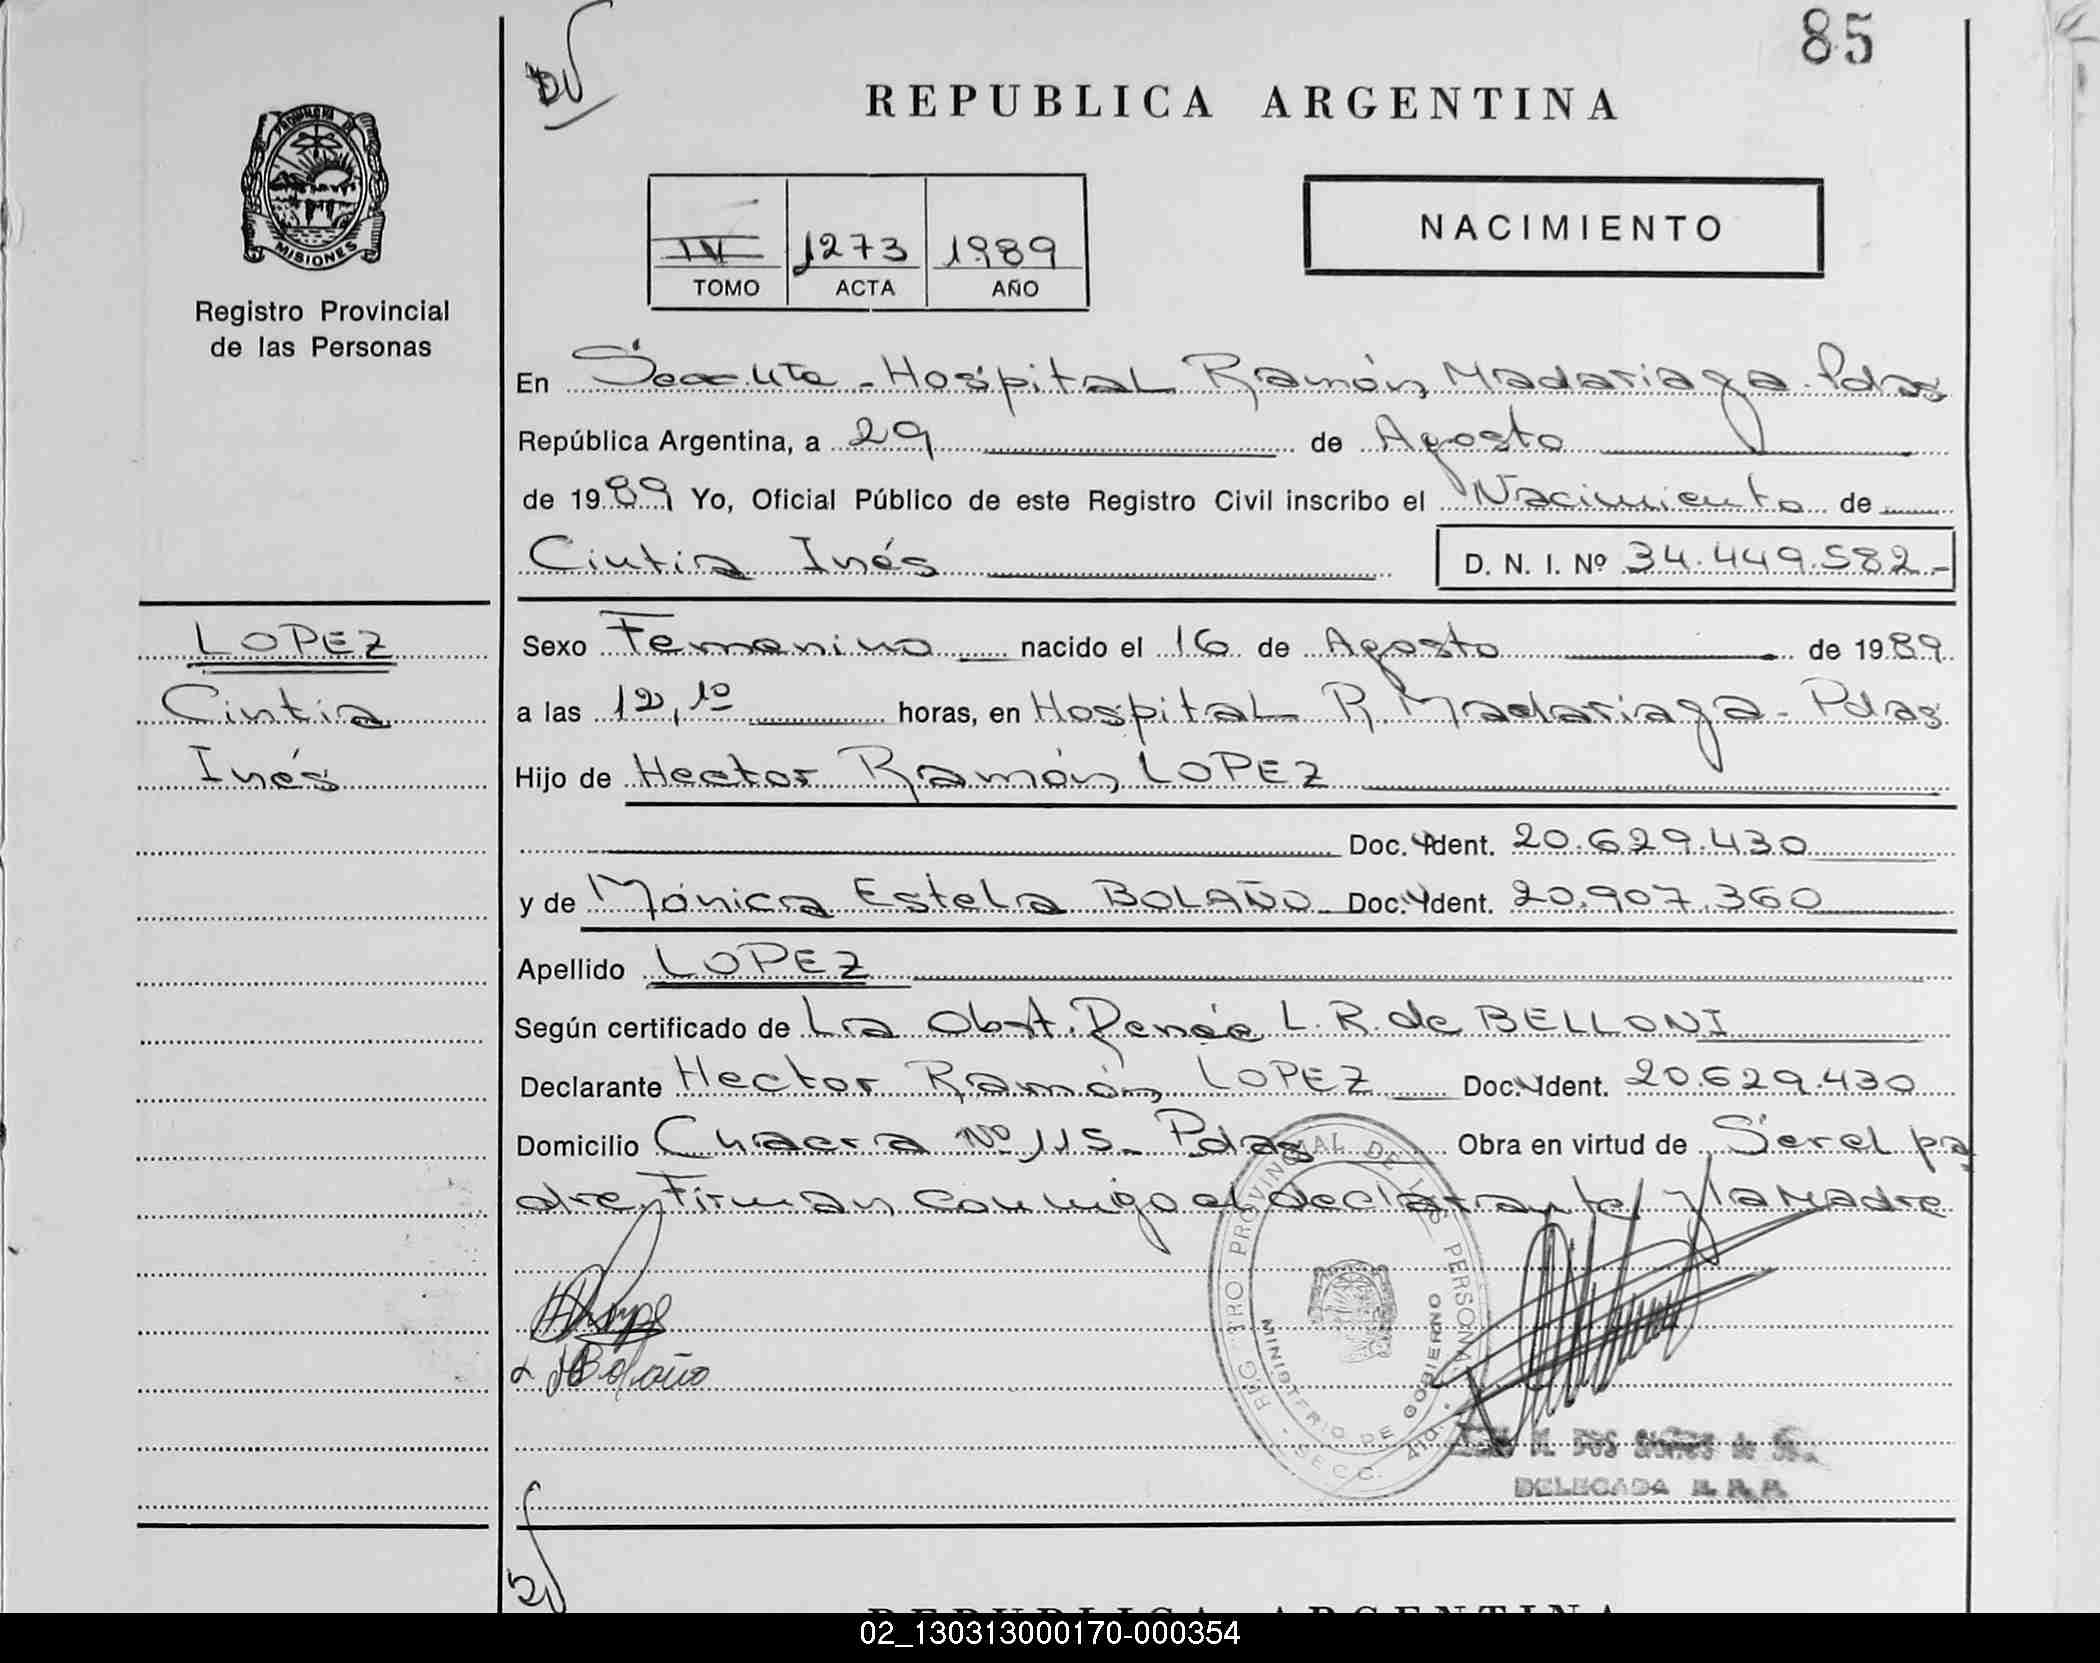 85
REPUBLICA ARGENTINA
PROVINCIA DE
MISIONES
Registro Provincial
de las Personas
IV 1273 1989
TOMO ACTA AÑO
NACIMIENTO
En Secc. 4ta - Hospital Ramón Madariaga. Pdas
República Argentina, a 29 de Agosto
de 1989 Yo, Oficial Público de este Registro Civil inscribo el Nacimiento de
Cintia Inés D. N. I. Nº 34.449.582-
LOPEZ
Cintia
Inés
Sexo Femenino nacido el 16 de Agosto de 1989
a las 12,10 horas, en Hospital R. Madariaga - Pdas
Hijo de Hector Ramón LOPEZ
Doc. Ydent. 20.629.430
y de Mónica Estela BOLAÑO Doc. Ydent. 20.907.360
Apellido LOPEZ
Según certificado de La Obst. Renée L. R. de BELLONI
Declarante Hector Ramón LOPEZ Doc. Ydent. 20.629.430
Domicilio Chacra Nº 115- Pdas Obra en virtud de Ser el pa
dre, Firman conmigo el declarante y la Madre
Bolaño
REGISTRO PROVINCIAL DE LAS PERSONAS
MINISTERIO DE GOBIERNO
SECC. 4ta.
DOS SANTOS de
DELEGADA R. P. P.
REPUBLICA ARGENTINA
02_130313000170-000354